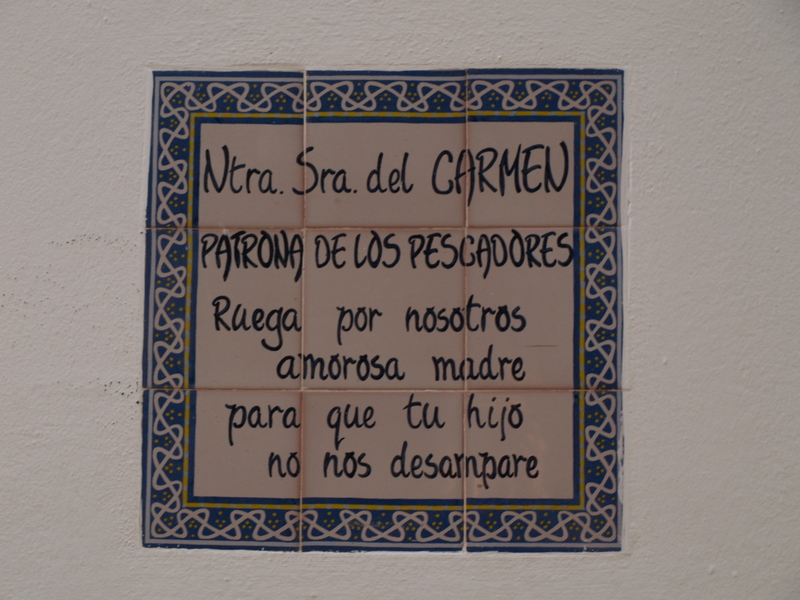 Ntra. Sra. del CARMEN
PATRONA DE LOS PESCADORES
Ruega por nosotros
amorosa madre
para que tu hijo
no nos desampare